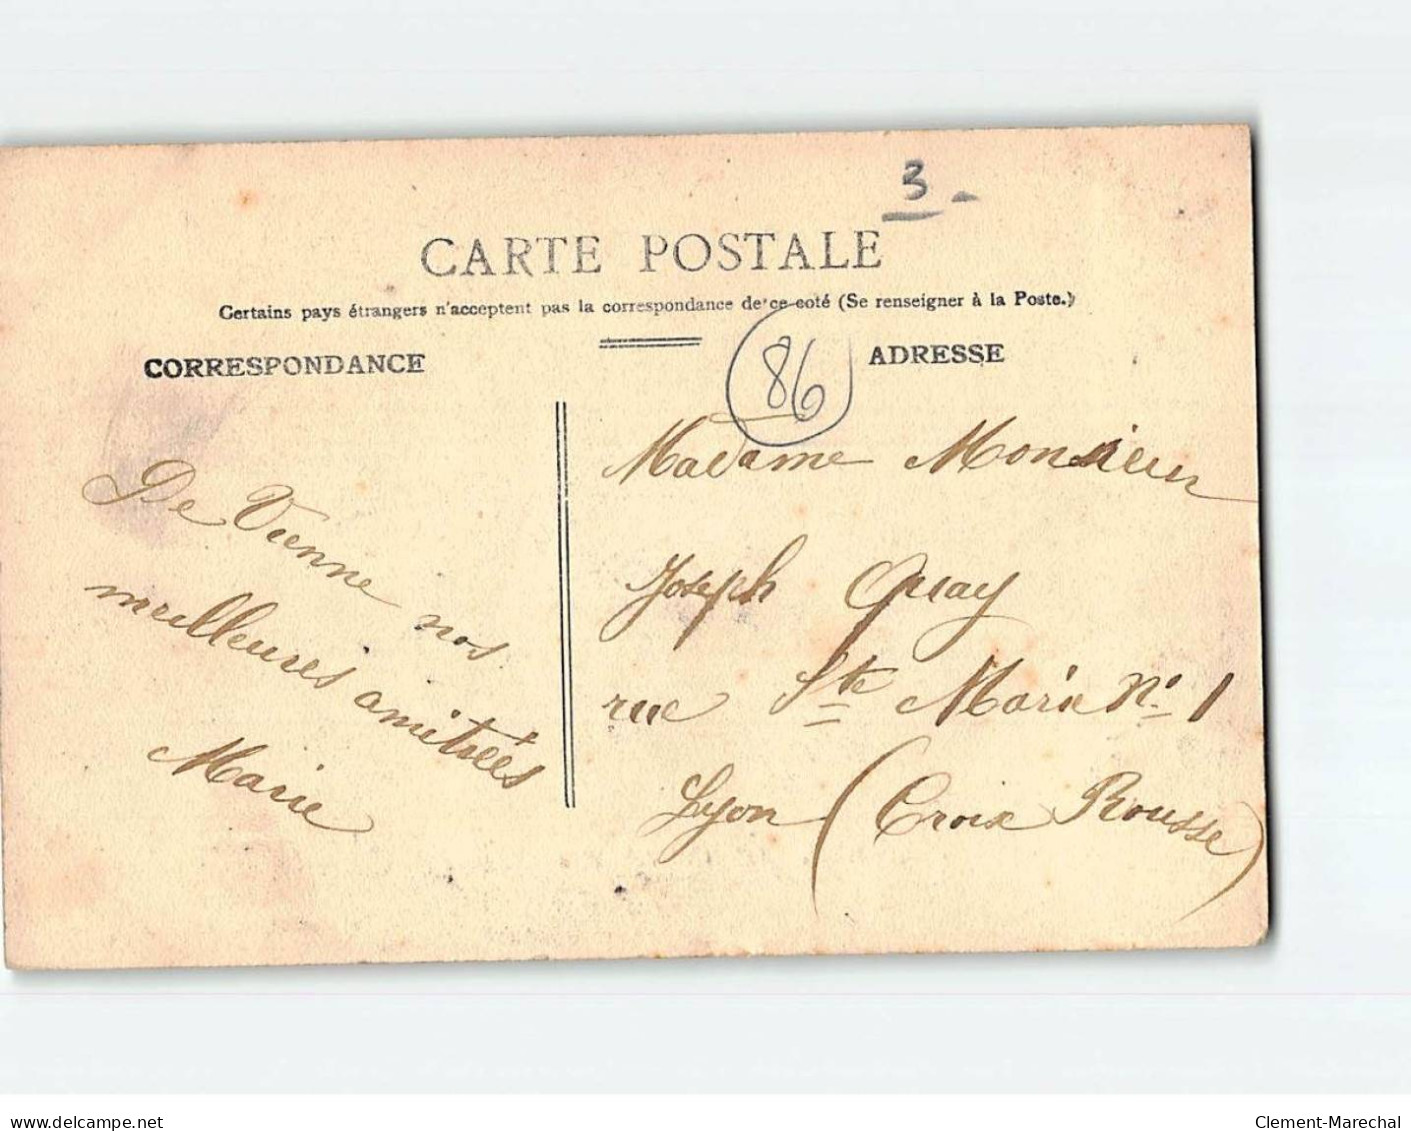 3 -
CARTE POSTALE
Certains pays étrangers n'acceptent pas la correspondance de ce coté (Se renseigner à la Poste.)
CORRESPONDANCE
De Vienne nos
meilleures amitiées
Marie
86
ADRESSE
Madame Monsieur
Joseph Quay
rue Ste Marie N° 1
Lyon (Croix Rousse)
www.delcampe.net
Clement-Marechal